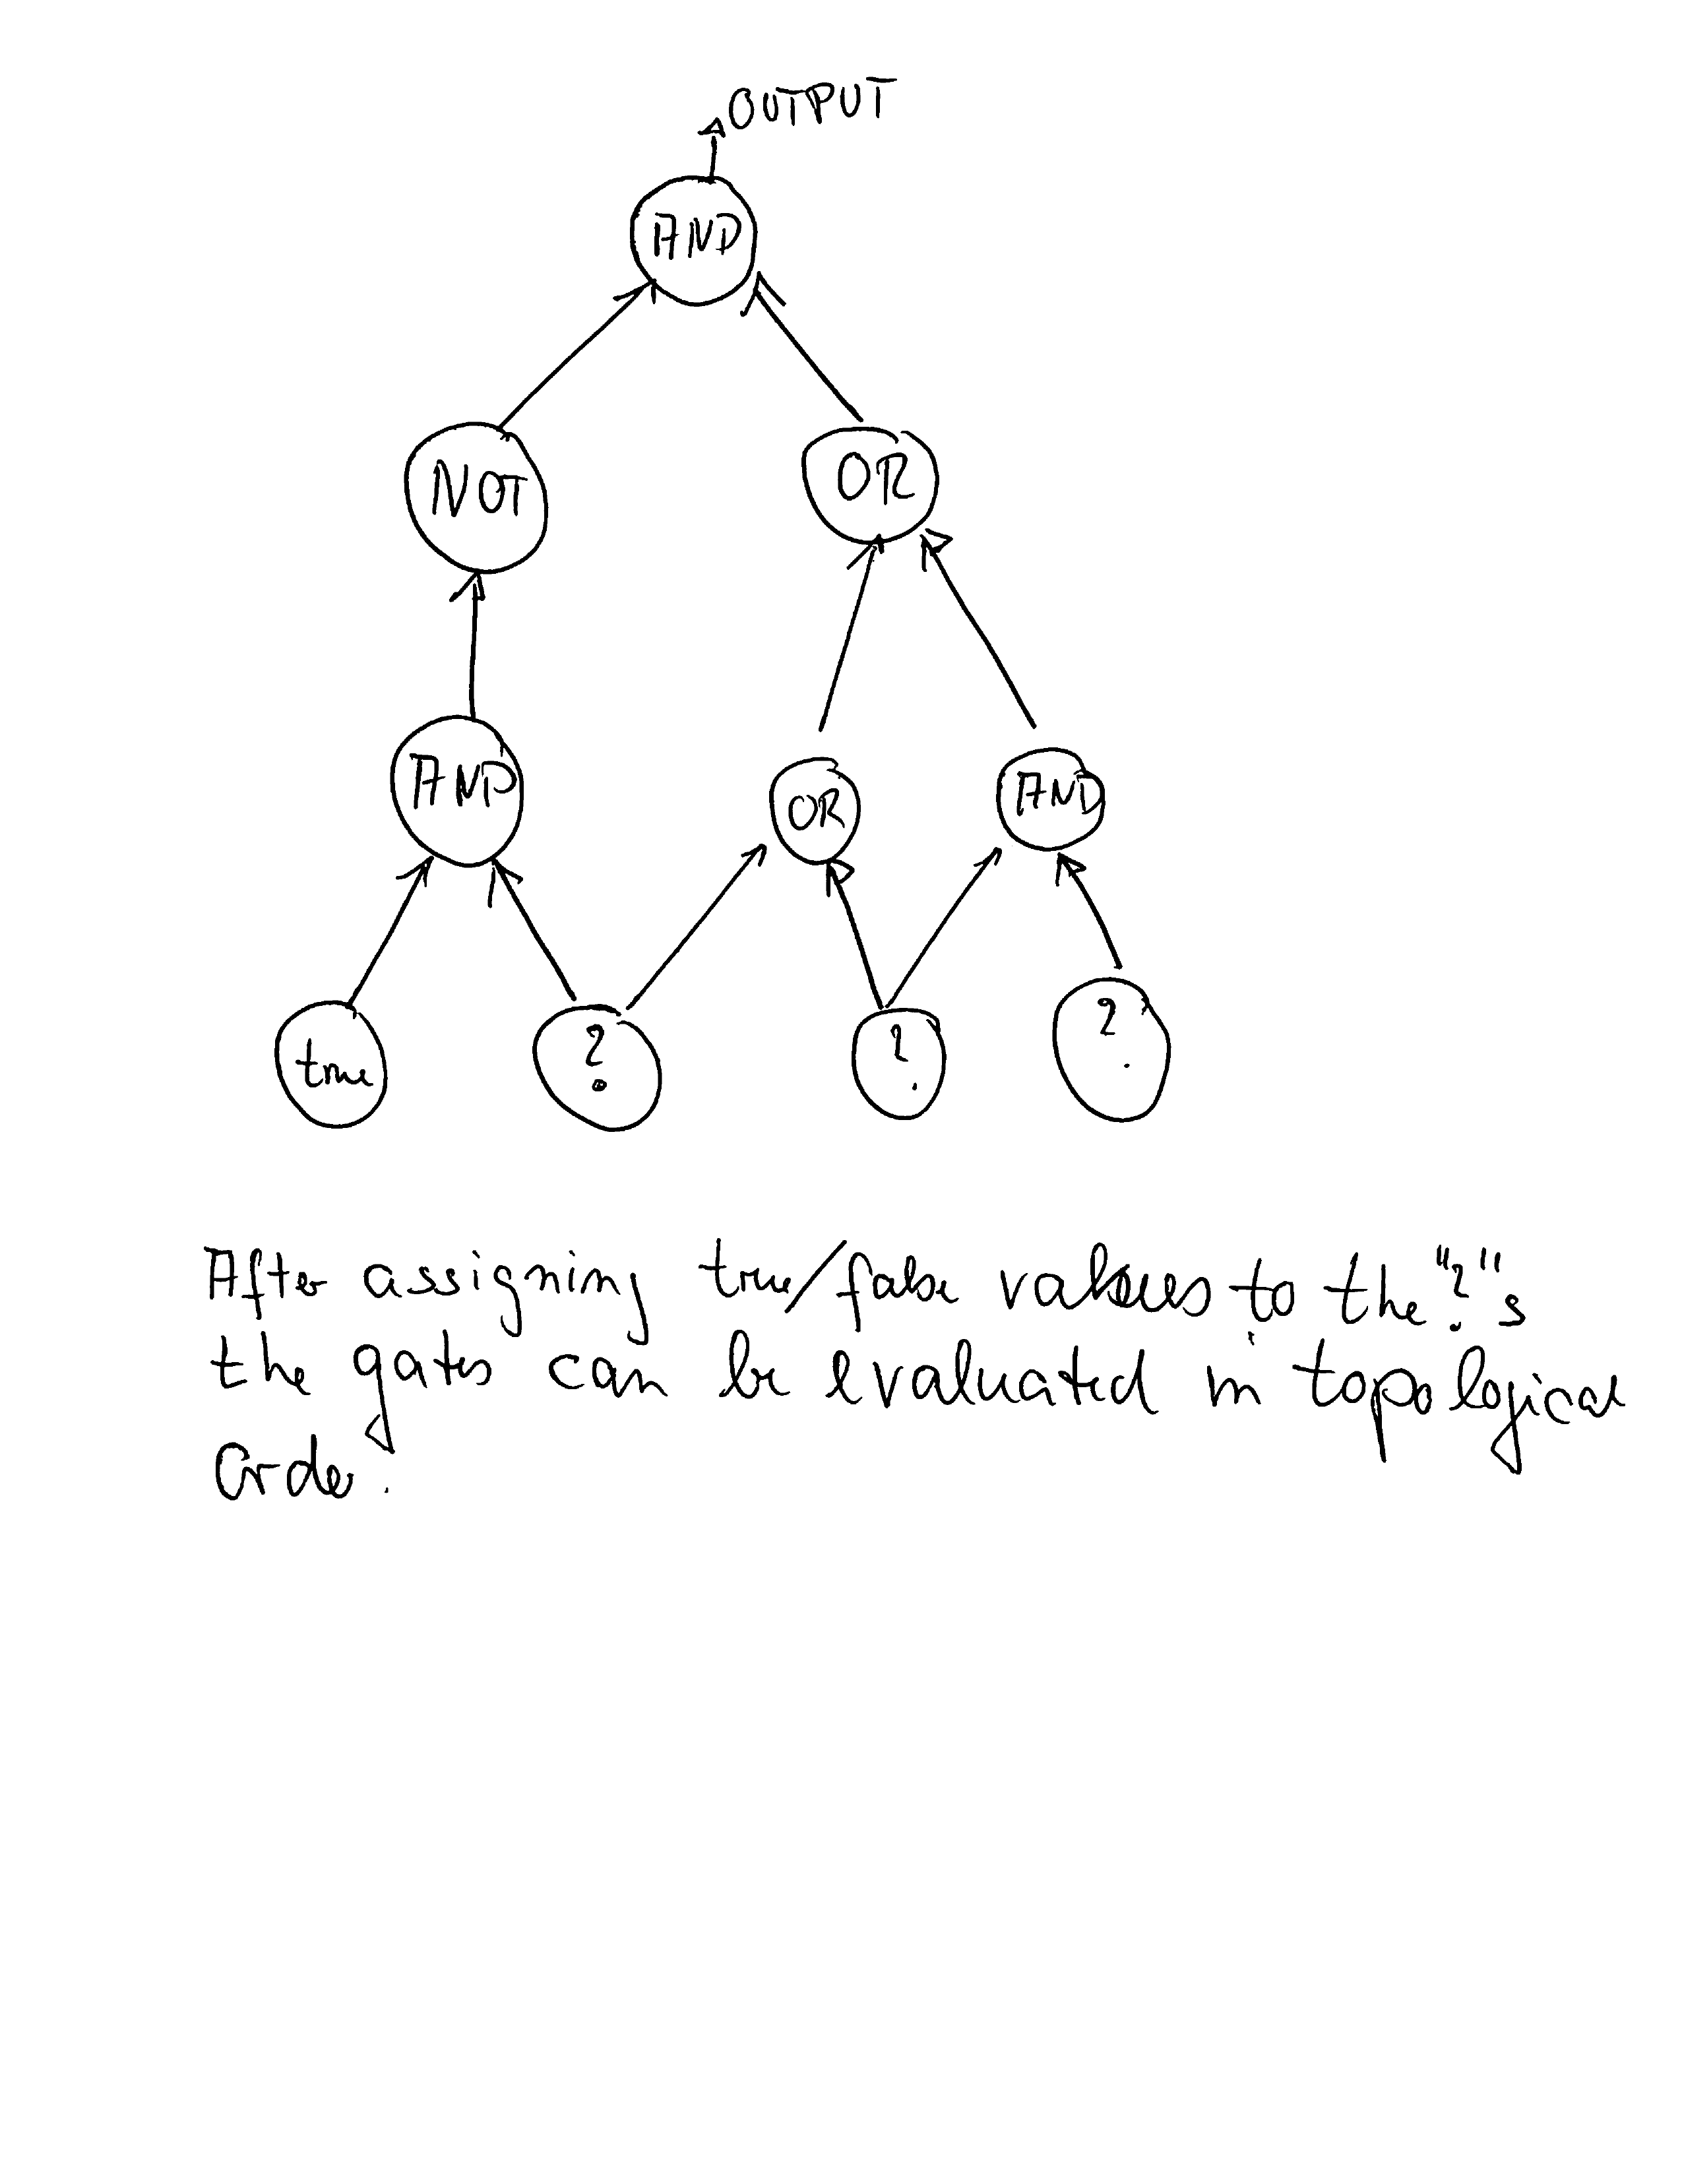 OUTPUT
AND
NOT OR
AND OR AND
true ? ? ?
After assigning true/false values to the "?"s
the gates can be evaluated in topological
order.